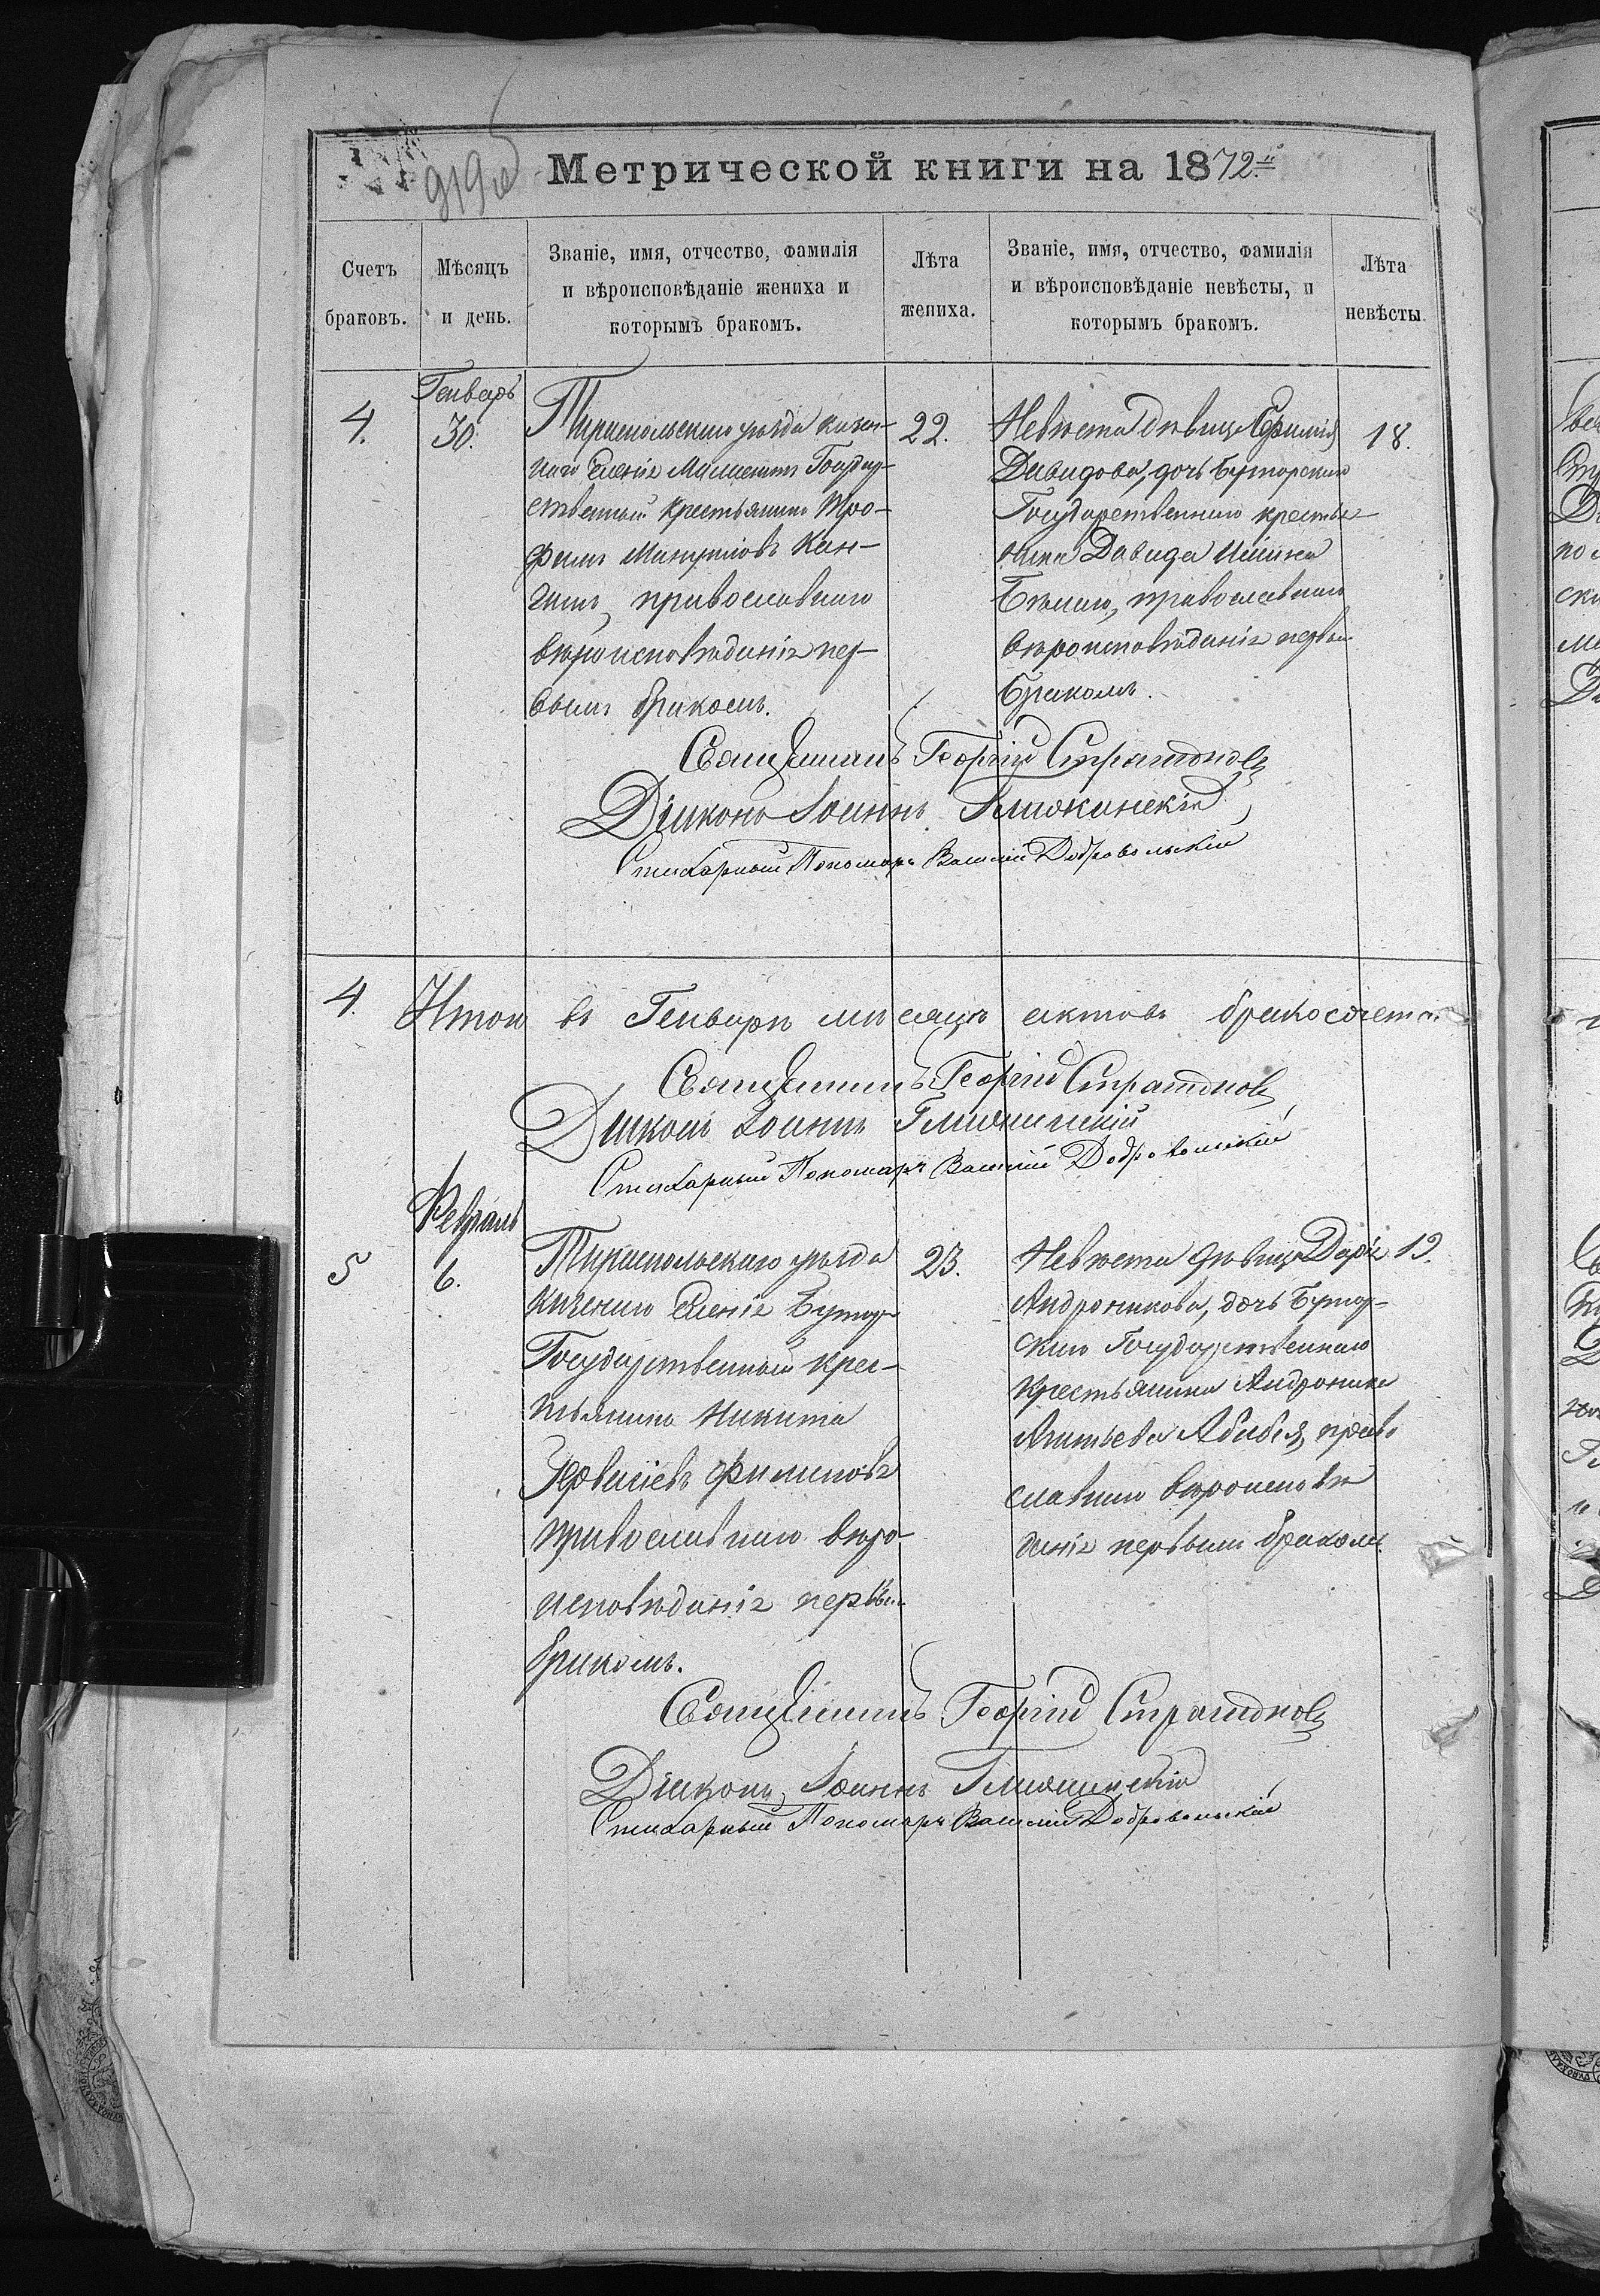 919 об
Метрической книги на 1872й
Счетъ браковъ.
Мѣсяцъ и день.
Званіе, имя, отчество, фамилія
и вѣроисповѣданіе жениха и
которымъ бракомъ.
Лѣта жениха.
Званіе, имя, отчество, фамилія
и вѣроисповѣданіе невѣсты, и
которымъ бракомъ.
Лѣта невѣсты.
4.
Генварь
30.
Тираспольскаго уѣзда казен-
наго селенія Государ-
ственный крестьянинъ Тро-
фимъ
православнаго
вѣроисповѣданія пер-
вымъ бракомъ.
22.
Невѣста дѣвица Ефимія
Давидова, дочь Буторскаго
Государственнаго крестья-
нина Давида
православнаго
вѣроисповѣданія первымъ
бракомъ.
18.
Священникъ Георгій Стратоновъ
Діаконъ Іоаннъ
Стихарный Пономарь Василій Добровольскій
4.
Итого въ Генварѣ мѣсяцѣ актовъ бракосочета.
Священникъ Георгій Стратоновъ
Діаконъ Іоаннъ
Стихарный Пономарь Василій Добровольскій
5
Февраль
6.
Тираспольскаго уѣзда
казеннаго селенія Бутор
Государственный крес-
тьянинъ Никита
Филиповъ
православнаго вѣро-
исповѣданія первымъ
бракомъ.
23.
Невѣста дѣвица Дарія
Андроникова, дочь Бутор-
скаго Государственнаго
крестьянина Андроника
право
славнаго вѣроисповѣ
данія первымъ бракомъ.
19.
Священникъ Георгій Стратоновъ
Діаконъ Іоаннъ
Стихарный Пономарь Василій Добровольскій